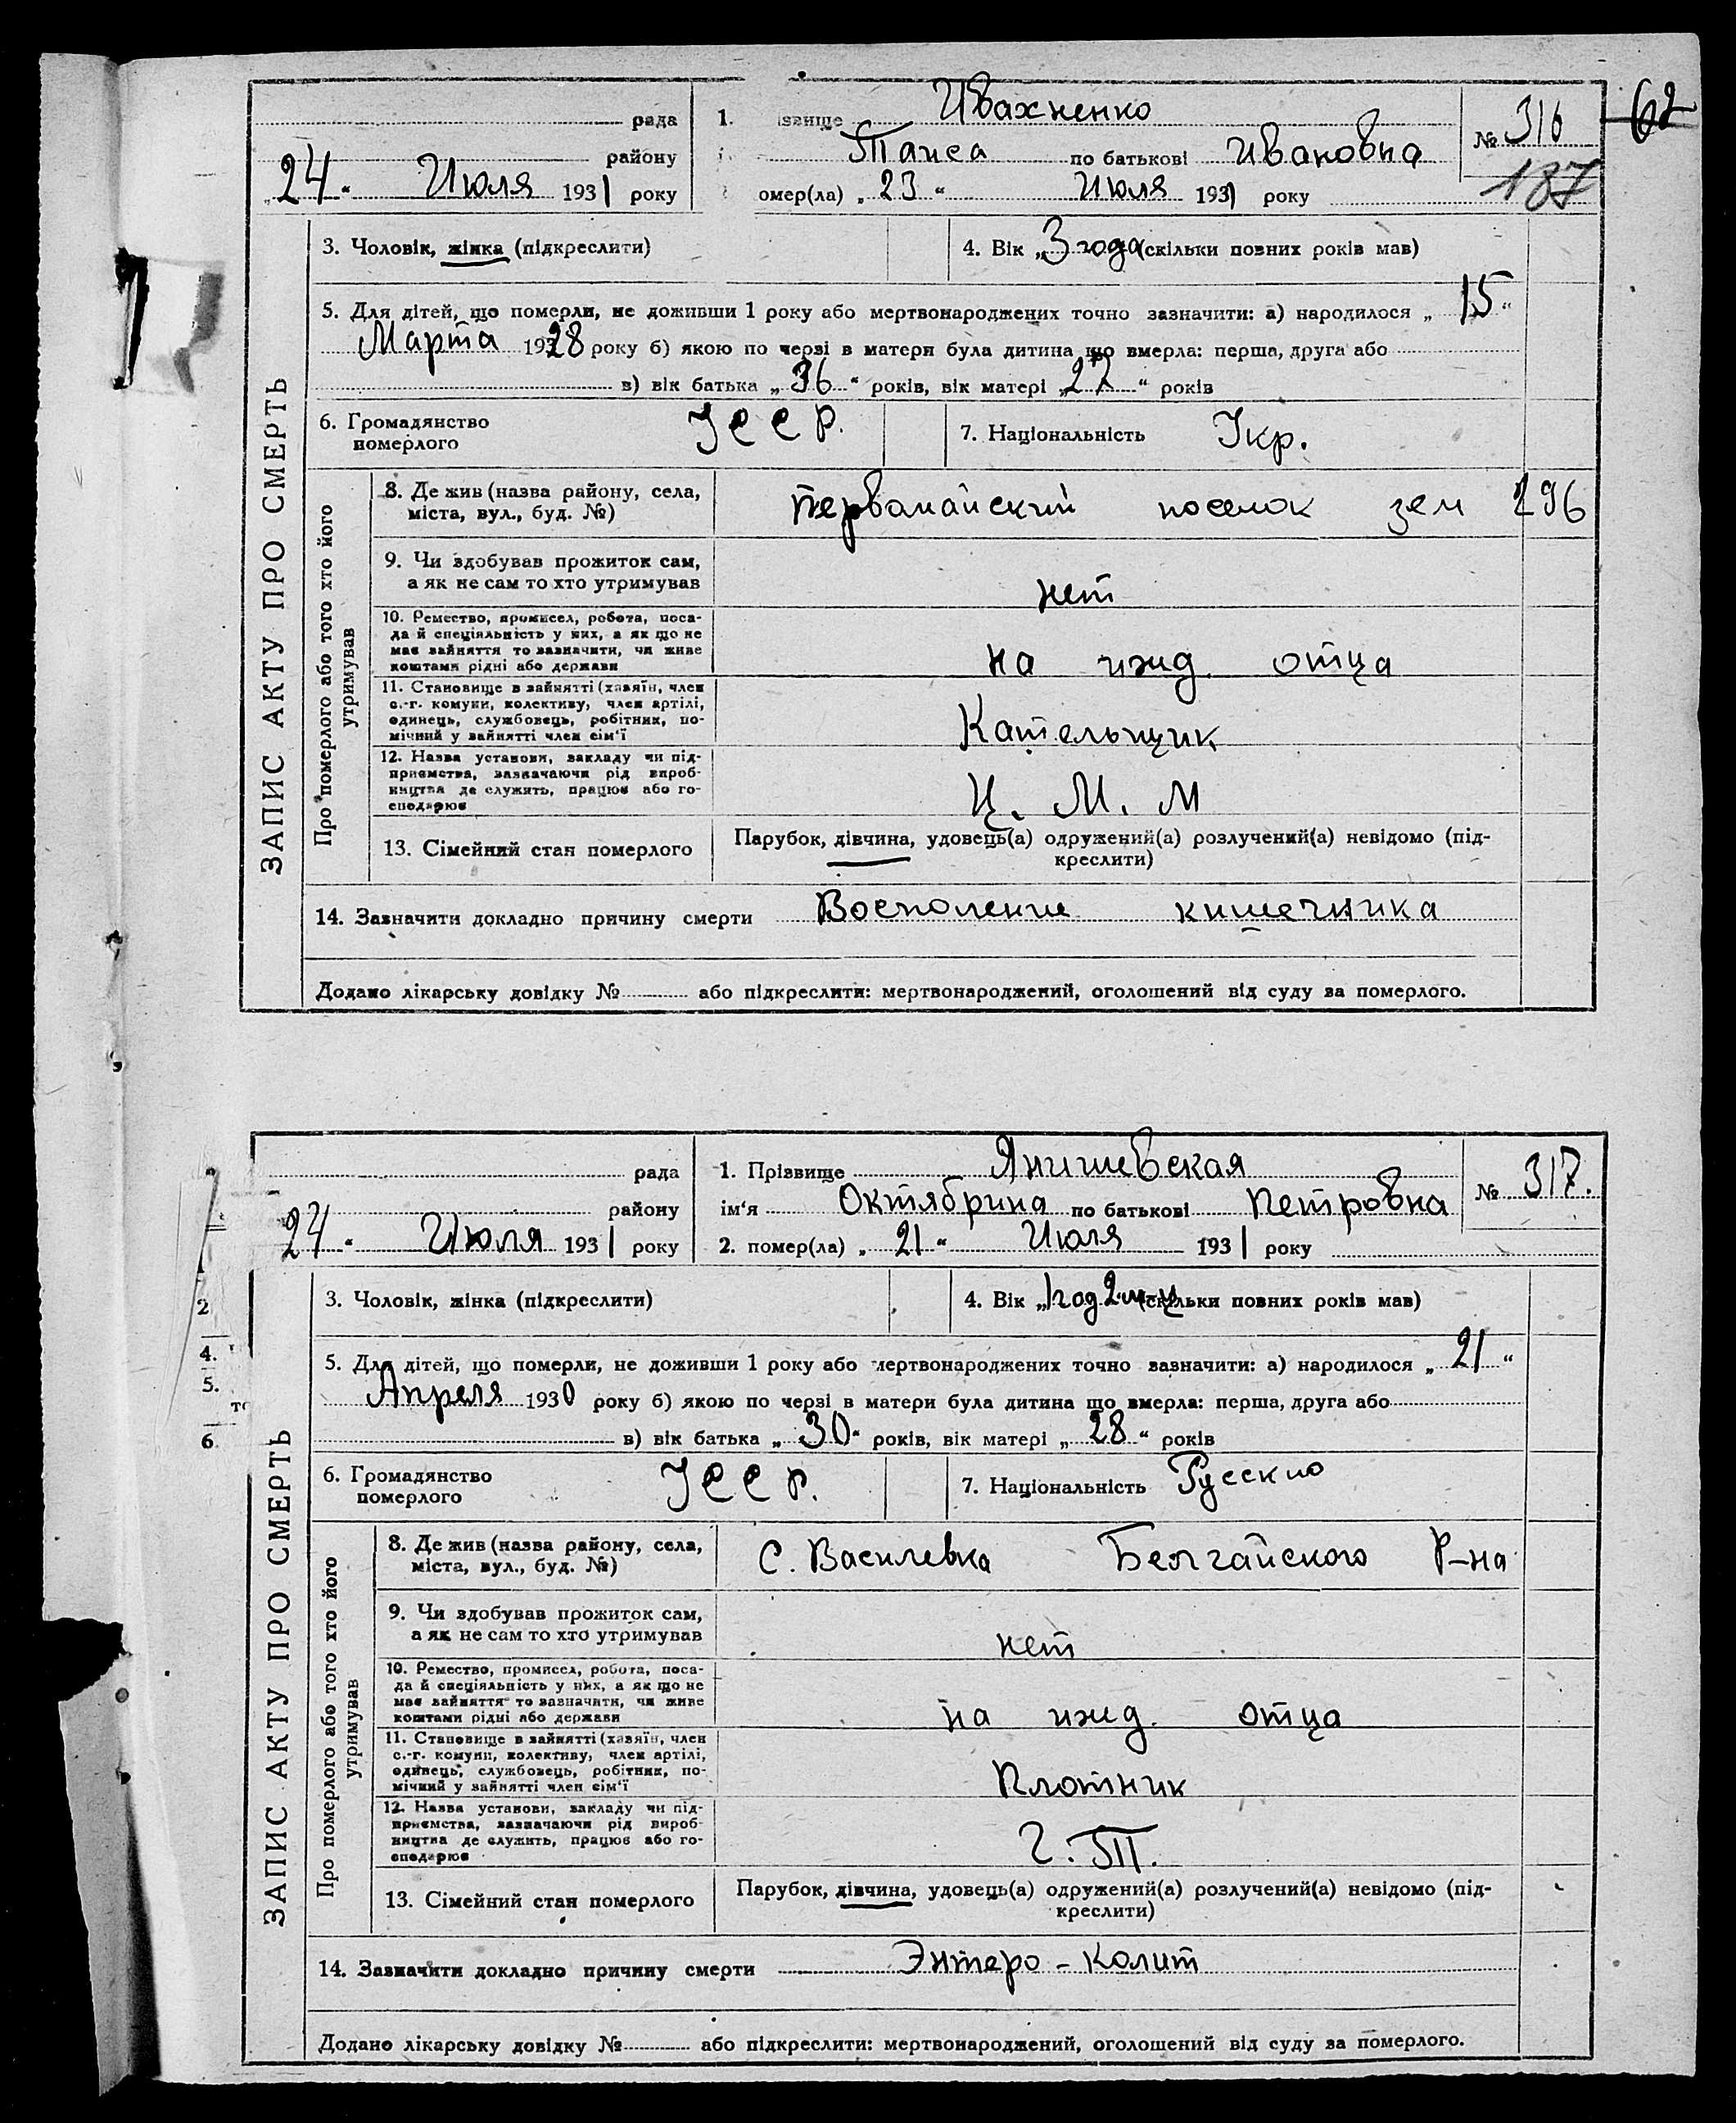 62
рада
району
24 " Июля 1931 року
1. ізвище Ивахненко
Таиса по батькові Ивановна
омер(ла) „ 23 " Июля 1931 року
№ 316
187
ЗАПИС АКТУ ПРО СМЕРТЬ
3. Чоловік, жінка (підкреслити)
4. Вік „ 3 года (скільки повних років мав)
5. Для дітей, що померли, не доживши 1 року або мертвонароджених точно зазначити: а) народилося „ 15 "
Марта 1928 року б) якою по черзі в матери була дитина що вмерла: перша, друга або
в) вік батька „ 36 " років, вік матері „ 27 " років
6. Громадянство
померлого
УССР.
7. Національність Укр.
Про померлого або того хто його
утримував
8. Де жив (назва району, села,
міста, вул., буд. №)
Первомайский поселок зем 296
9. Чи здобував прожиток сам,
а як не сам то хто утримував
нет
10. Ремество, промисел, робота, поса-
да й спеціяльність у них, а як що не
має зайняття то зазначити, чи живе
коштами рідні або держави
на ижд. отца
11. Становище в зайнятті (хазяїн, член
с.-г. комуни, колективу, член артілі,
одинець, службовець, робітник, по-
мічний у зайнятті член сім'ї
Кательщик
12. Назва установи, закладу чи під-
приємства, зазначаючи рід вироб-
ництва де служить, працює або го-
сподарює
Ц. М. М
13. Сімейний стан померлого
Парубок, дівчина, удовець(а) одружений(а) розлучений(а) невідомо (під-
креслити)
14. Зазначити докладно причину смерти Восполение кишечника
Додано лікарську довідку № або підкреслити: мертвонароджений, оголошений від суду за померлого.
рада
району
24 " Июля 1931 року
1. Прізвище Янишевская
ім'я Октябрина по батькові Петровна
2. помер(ла) „ 21 " Июля 1931 року
№ 317.
2
4.
5.
то
6
ЗАПИС АКТУ ПРО СМЕРТЬ
3. Чоловік, жінка (підкреслити)
4. Вік „ 1 год 2 м-ц (скільки повних років мав)
5. Для дітей, що померли, не доживши 1 року або мертвонароджених точно зазначити: а) народилося „ 21 "
Апреля 1930 року б) якою по черзі в матери була дитина що вмерла: перша, друга або
в) вік батька „ 30 " років, вік матері „ 28 " років
6. Громадянство
померлого
УССР.
7. Національність Русскио
Про померлого або того хто його
утримував
8. Де жив (назва району, села,
міста, вул., буд. №)
С. Василевка Белгайского Р-на
9. Чи здобував прожиток сам,
а як не сам то хто утримував
нет
10. Ремество, промисел, робота, поса-
да й спеціяльність у них, а як що не
має зайняття то зазначити, чи живе
коштами рідні або держави
на ижд. отца
11. Становище в зайнятті (хазяїн, член
с.-г. комуни, колективу, член артілі,
одинець, службовець, робітник, по-
мічний у зайнятті член сім'ї
Плотник
12. Назва установи, закладу чи під-
приємства, зазначаючи рід вироб-
ництва де служить, працює або го-
сподарює
Г. Т.
13. Сімейний стан померлого
Парубок, дівчина, удовець(а) одружений(а) розлучений(а) невідомо (під-
креслити)
14. Зазначити докладно причину смерти Энтеро - Колит
Додано лікарську довідку № або підкреслити: мертвонароджений, оголошений від суду за померлого.